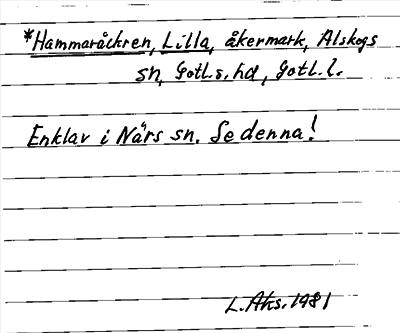 *Hammaråckren, Lilla, åkermark, Alskogs
sn, Gotl. s. hd, Gotl. l.
Enklav i Närs sn. Se denna!
L. Aks. 1981